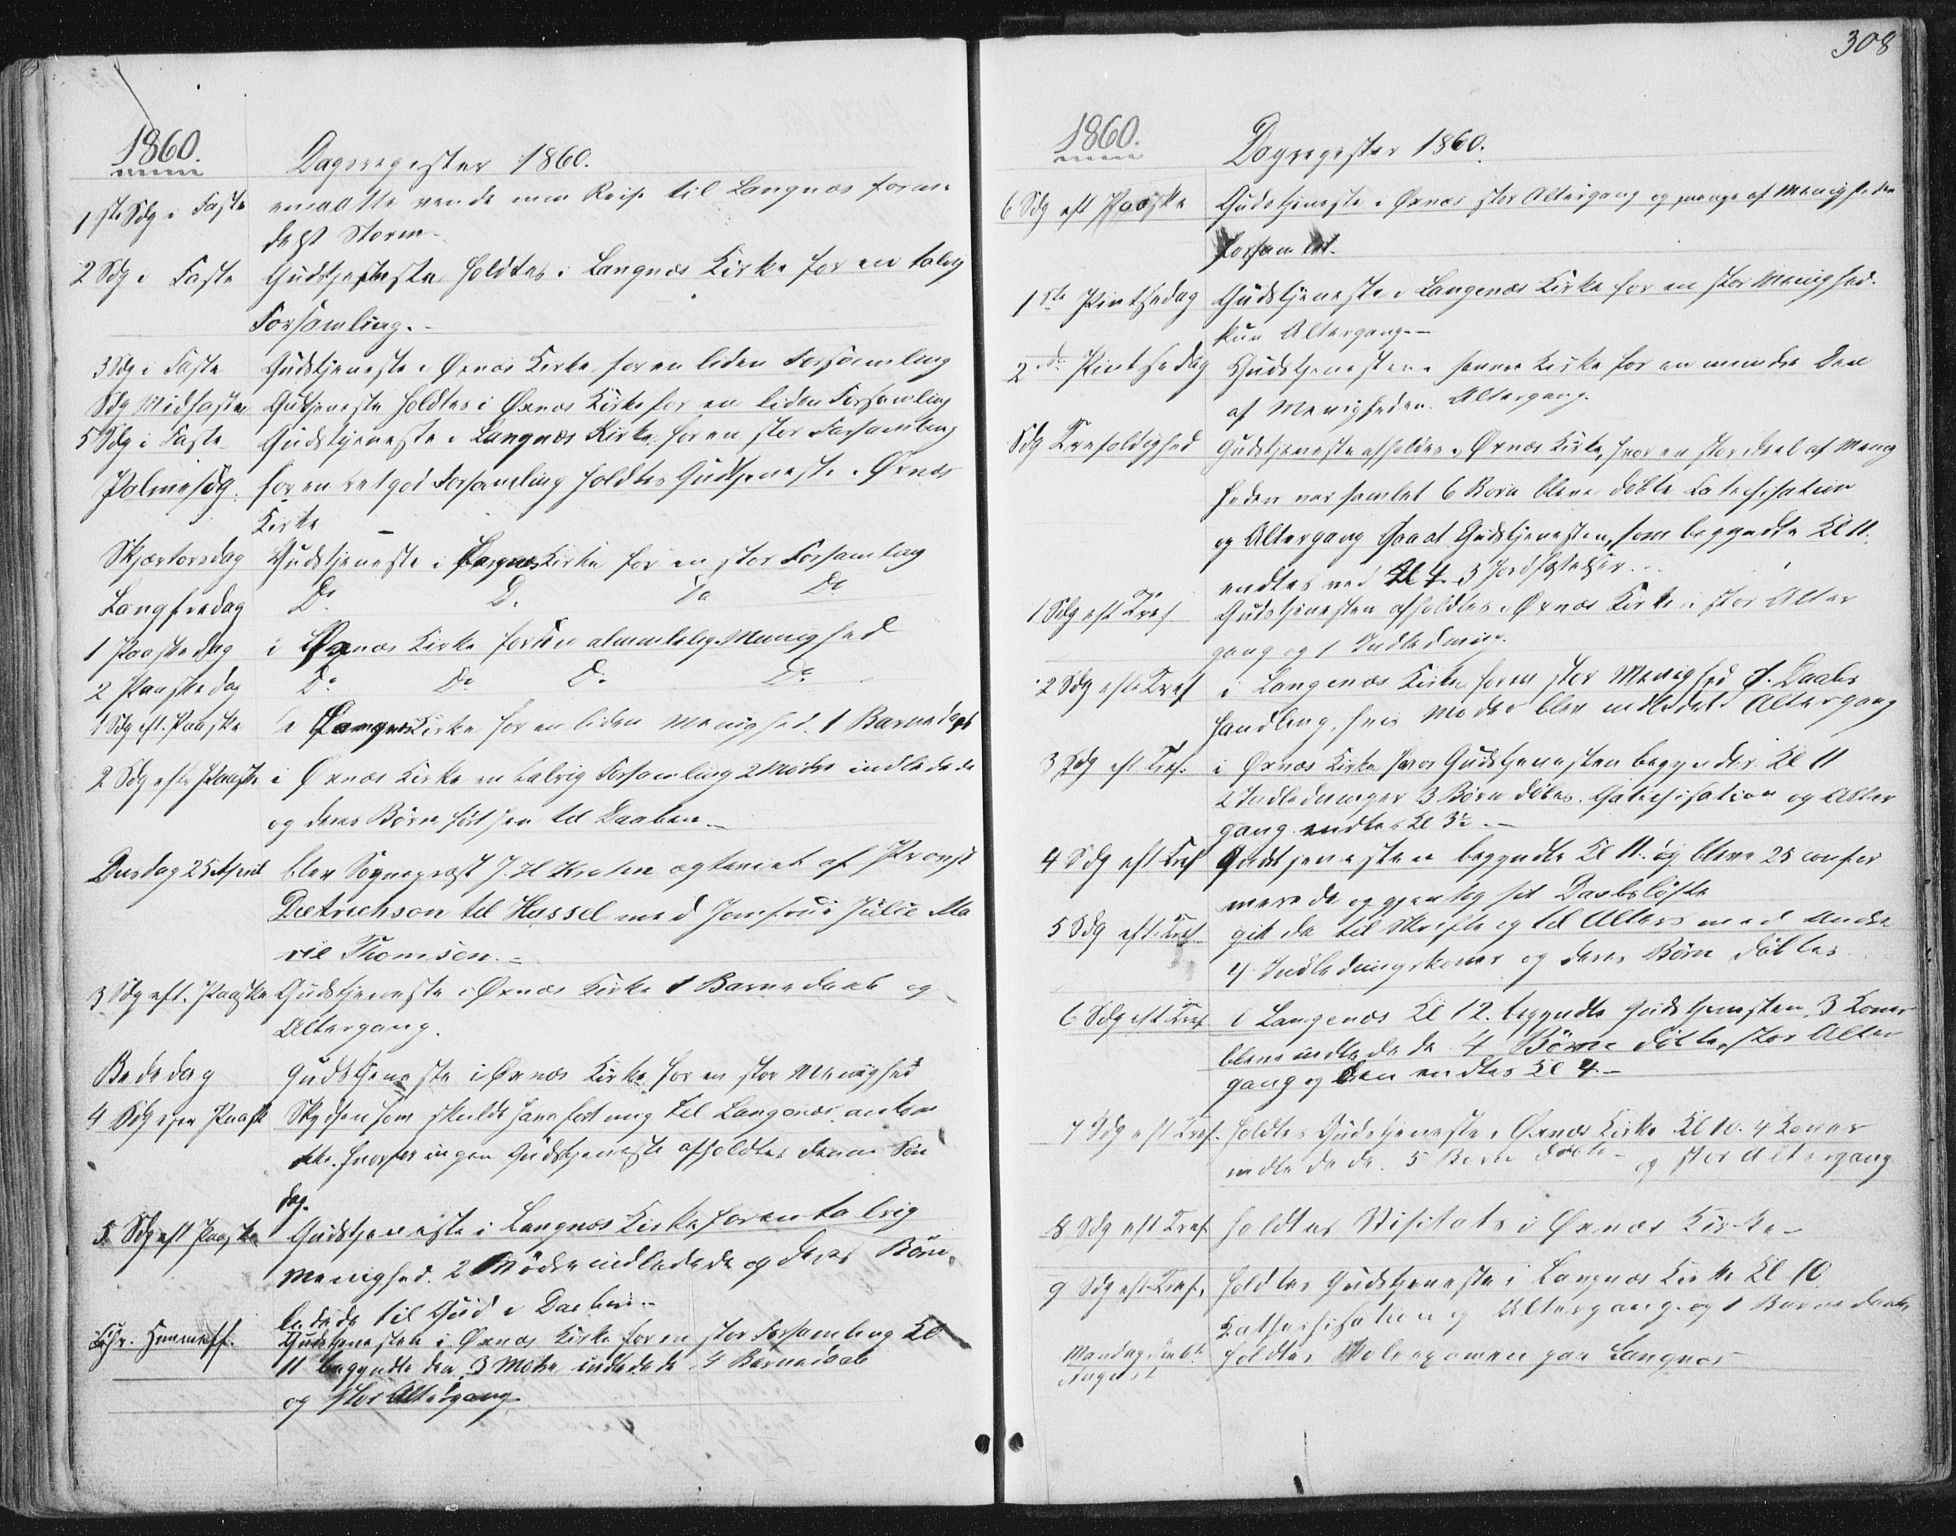 1860.
Dagsregister 1860.
1ste Sdg i Faste maatte vende min Reise til Langnæs formedelst Storm.
2 Sdg i Faste Gudstjeneste holdtes i Langnæs Kirke for en talrig
Forsamling.
3 Sdg i Faste Gudstjeneste i Øxnæs Kirke for en liden Forsamling
Sdg Midfaste Gudstjeneste holdtes i Øxnæs Kirke for en liden Forsamling
5 Sdg i Faste Gudstjeneste i Langnæs Kirke for en stor Forsamling
Palmesøg. for en ret god Forsamling holdtes Gudstjeneste i Øxnæs
Kirke
Skjærtorsdag Gudstjeneste i Langnæs Kirke for en stor Forsamling
Langfredag Do Do Do Do
1 Paaskedag i Øxnæs Kirke for en almindelig Menighed
2 Paaskedag Do Do Do Do
1 Sdg eft. Paaske i Langnæs Kirke for en liden Menighed. 1 Barnedaab
2 Sdg efter Paaske i Øxnæs Kirke en talrig Forsamling 2 Mødre indledede
og deres Børn til Daaben
Onsdag 25 April blev Sognepræst J. H. af Provst
Dietrichson til Hassel med Jomfrue Julie Ma
rie Thomsen.
3 Sdg eft. Paaske Gudstjeneste i Øxnæs Kirke 1 Barnedaab og
Altergang.
Bededag Gudstjeneste i Øxnæs Kirke for en stor Menighed
4 Sdg efter Paaske Skydsen som skulde have ført mig til Langenæs ankom
ikke, hvorfor ingen Gudstjeneste afholdtes denne Søn
dag.
5 Sdg eft Paaske Gudstjeneste i Langnæs Kirke for en talrig
Menighed. 2 Mødre indledede og deres Børn
til Gud i Daaben.
Chr. Himmelf. Gudstjenesten i Øxnæs Kirke for en stor Forsamling Kl
11 begyndte den 3 Mødre indledede 4 Barnedaab
og stor Altergang
308
1860.
Dagregister 1860.
6 Sdg eft Paaske Gudstjeneste i Øxnæs stor Altergang og mange af Menigheden
forsamlet.
1ste Pintsedag Gudstjeneste i Langenæs Kirke for en stor Menighed.
kun Altergang.
2de Pintsedag Gudstjenesten i samme Kirke for en mindre Deel
af Menigheden. Altergang.
Sdg Trefoldighed Gudstjeneste afholdes i Øxnæs Kirke, hvor en stor deel af Menig
heden var samlet 6 Børn bleve døbte Catechisation
og Altergang Gudstjenesten, som begyndte Kl 11.
endtes ved Kl 4. 3 Jordfæstelser.
1 Sdg eft Tref Gudstjenesten afholdtes i Øxnæs Kirke, stor Alter
gang og 1 Indledning.
2 Sdg efter Tref i Langenæs Kirke for en stor Menighed 1 Daabs
handling, hvis Moder blev indledet Altergang
3 Sdg eft Tref. i Øxnæs Kirke hvor Gudstjenesten begynder Kl 11
2 Indledninger 3 Børn døbes. Catechisation og Alter
gang endtes Kl 3½
4 Sdg eft Tref Gudstjenesten begyndte Kl 11. og bleve 25 confir
merede og gjentog sit Daabsløfte
5 Sdg eft. Tref. gik de til Skrifte og til Alters med Andre
4 Indledningskoner og deres Børn døbtes
6 Sdg eft Tref i Langenæs Kl 12. begyndte Gudstjenesten, 3 Koner
bleve indledede. 4 Børn døbte, stor Alter
gang og den endtes Kl 4.
7 Sdg eft Tref. holdtes Gudstjeneste i Øxnæs Kirke Kl 10. 4 Koner
indledede. 5 Børn døbte og stor Altergang
8 Sdg eft Tref. holdtes Visitats i Øxnæs Kirke
9 Sdg eft Tref. holdtes Gudstjeneste i Langnæs Kirke Kl 10
Katechisation og Altergang og 1 Barnedaab
Mandag August holdtes Skoleexamen paa Langnæs